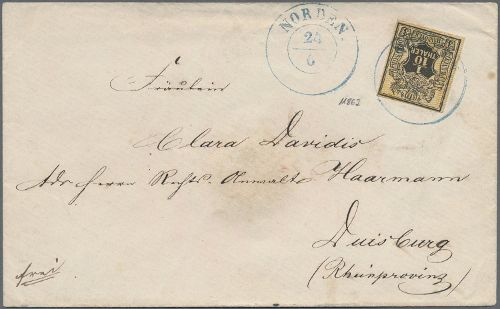 NORDEN.
24
6
1/10
THALER
11862
Fräulein
Clara Davidis
Adr. Herrn Rechts-Anwalts Haarmann
Duisburg
(Rheinprovinz)
frei